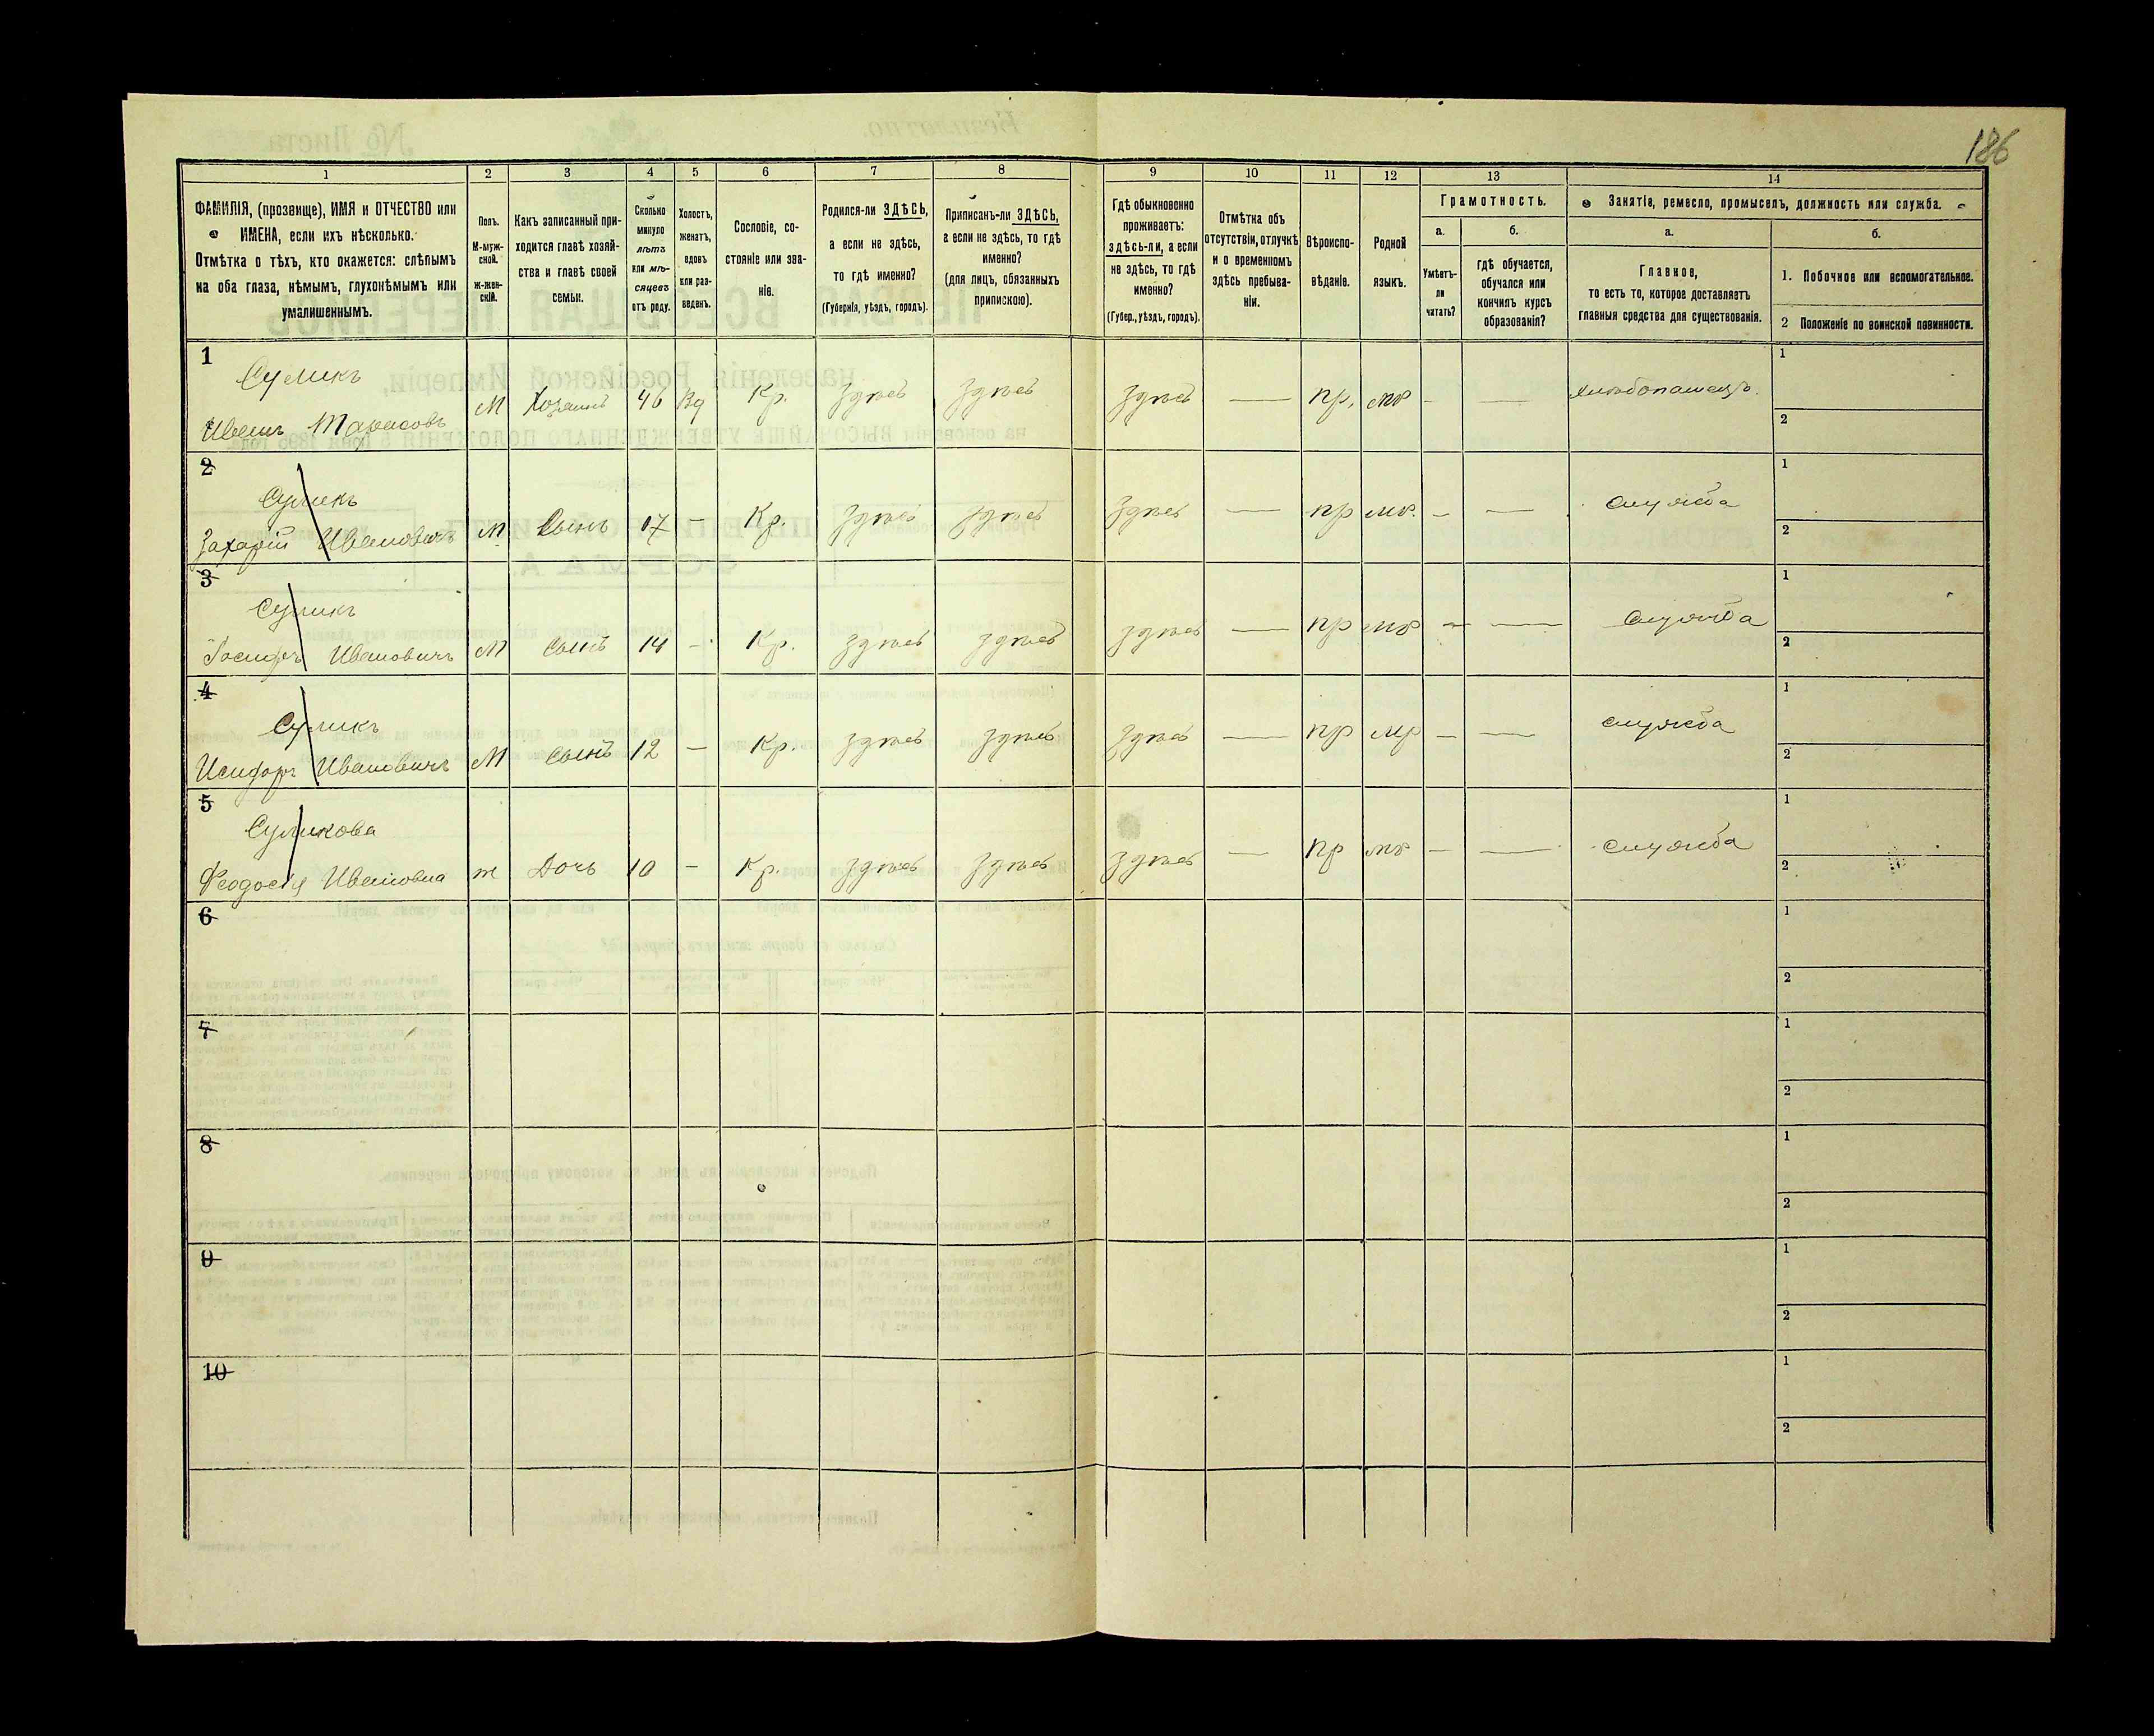 186
1 2 3 4 5 6 7 8 9 10 11 12 13 14
ФАМИЛІЯ, (прозвище), ИМЯ и ОТЧЕСТВО или
ИМЕНА, если ихъ нѣсколько.
Отмѣтка о тѣхъ, кто окажется: слѣпымъ
на оба глаза, нѣмымъ, глухонѣмымъ или
умалишеннымъ.
Полъ.
М-муж-
ской.
Ж-жен-
скій.
Какъ записанный при-
ходится главѣ хозяй-
ства и главѣ своей
семьи.
Сколько
минуло
лѣтъ
или мѣ-
сяцевъ
отъ роду.
Холостъ,
женатъ,
вдовъ
или раз-
веденъ.
Сословіе, со-
стояніе или зва-
ніе.
Родился-ли ЗДѢСЬ,
а если не здѣсь,
то гдѣ именно?
(Губернія, уѣздъ, городъ).
Приписанъ-ли ЗДѢСЬ,
а если не здѣсь, то гдѣ
именно?
(для лицъ, обязанныхъ
припискою).
Гдѣ обыкновенно
проживаетъ:
здѣсь-ли, а если
не здѣсь, то гдѣ
именно?
(Губер., уѣздъ, городъ).
Отмѣтка объ
отсутствіи, отлучкѣ
и о временномъ
здѣсь пребыва-
ніи.
Вѣроиспо-
вѣданіе.
Родной
языкъ.
Грамотность.
а. б.
Умѣетъ-
ли
читать?
гдѣ обучается,
обучался или
кончилъ курсъ
образованія?
Занятіе, ремесло, промыселъ, должность или служба.
а. б.
Главное,
то есть то, которое доставляетъ
главныя средства для существованія.
1. Побочное или вспомогательное.
2 Положеніе по воинской повинности.
1 1
Суликъ
Иванъ Тарасовъ М Хозяинъ 46 Вд Кр. Здѣсь Здѣсь Здѣсь — пр. мр — — Хлѣбопашецъ
2
2 1
Суликъ
Захарій Ивановичъ М Сынъ 17 — Кр. Здѣсь Здѣсь Здѣсь — пр мр. — — служба
2
3 1
Суликъ
Іосифъ Ивановичъ М Сынъ 14 — Кр. здѣсь здѣсь здѣсь — пр мр — — служба
2
4 1
Суликъ
Исидоръ Ивановичъ М Сынъ 12 — Кр. здѣсь здѣсь здѣсь — пр мр — — служба
2
5 1
Суликова
Феодосія Ивановна ж Дочь 10 — Кр. здѣсь здѣсь здѣсь — пр мр — — служба
2
6 1
2
7 1
2
8 1
2
9 1
2
10 1
2